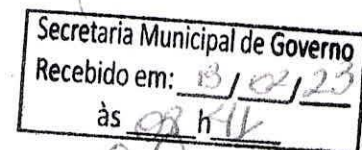 Secretaria Municipal de Governo
Recebido em: 13 / 02 / 23
às 08 h 41